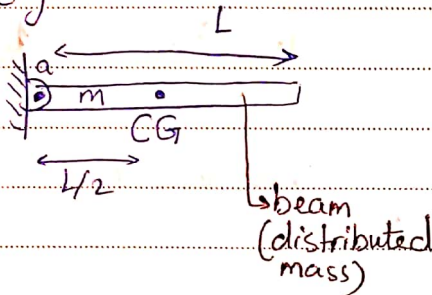 L
a
m
CG
L/2
beam
(distributed
mass)